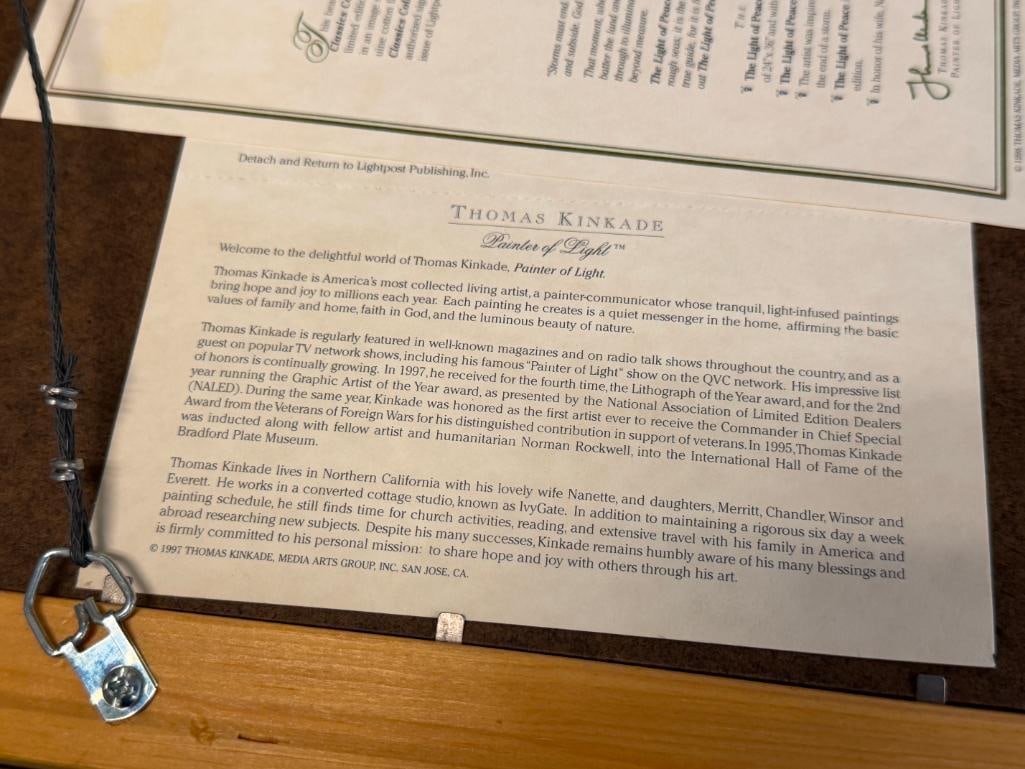 Detach and Return to Lightpost Publishing, Inc.
THOMAS KINKADE
Painter of Light™
Welcome to the delightful world of Thomas Kinkade, Painter of Light.
Thomas Kinkade is America's most collected living artist, a painter-communicator whose tranquil, light-infused paintings
bring hope and joy to millions each year. Each painting he creates is a quiet messenger in the home, affirming the basic
values of family and home, faith in God, and the luminous beauty of nature.
Thomas Kinkade is regularly featured in well-known magazines and on radio talk shows throughout the country, and as a
guest on popular TV network shows, including his famous "Painter of Light" show on the QVC network. His impressive list
of honors is continually growing. In 1997, he received for the fourth time, the Lithograph of the Year award, and for the 2nd
year running the Graphic Artist of the Year award, as presented by the National Association of Limited Edition Dealers
(NALED). During the same year, Kinkade was honored as the first artist ever to receive the Commander in Chief Special
Award from the Veterans of Foreign Wars for his distinguished contribution in support of veterans. In 1995, Thomas Kinkade
was inducted along with fellow artist and humanitarian Norman Rockwell, into the International Hall of Fame of the
Bradford Plate Museum.
Thomas Kinkade lives in Northern California with his lovely wife Nanette, and daughters, Merritt, Chandler, Winsor and
Everett. He works in a converted cottage studio, known as IvyGate. In addition to maintaining a rigorous six day a week
painting schedule, he still finds time for church activities, reading, and extensive travel with his family in America and
abroad researching new subjects. Despite his many successes, Kinkade remains humbly aware of his many blessings and
is firmly committed to his personal mission: to share hope and joy with others through his art.
© 1997 THOMAS KINKADE, MEDIA ARTS GROUP, INC. SAN JOSE, CA.
This
Classics Col
limited editio
in an image
Classics Col
authorized sig
issue of Lightpo
"Storms must end.
and outside. God
That moment, whe
batter the land an
through to illumin
beyond measure.
The Light of Peace
rough seas; it is the
true guide, for it is
out The Light of Pe
THE
The Light of Peace
of 24"x36" and with
The Light of Peace
The artist was inspir
the end of a storm.
The Light of Peace
edition.
In honor of his wife, N
THOMAS KINKAD
PAINTER OF LIGH
© 1996 THOMAS KINKADE, MEDIA ARTS GROUP, INC